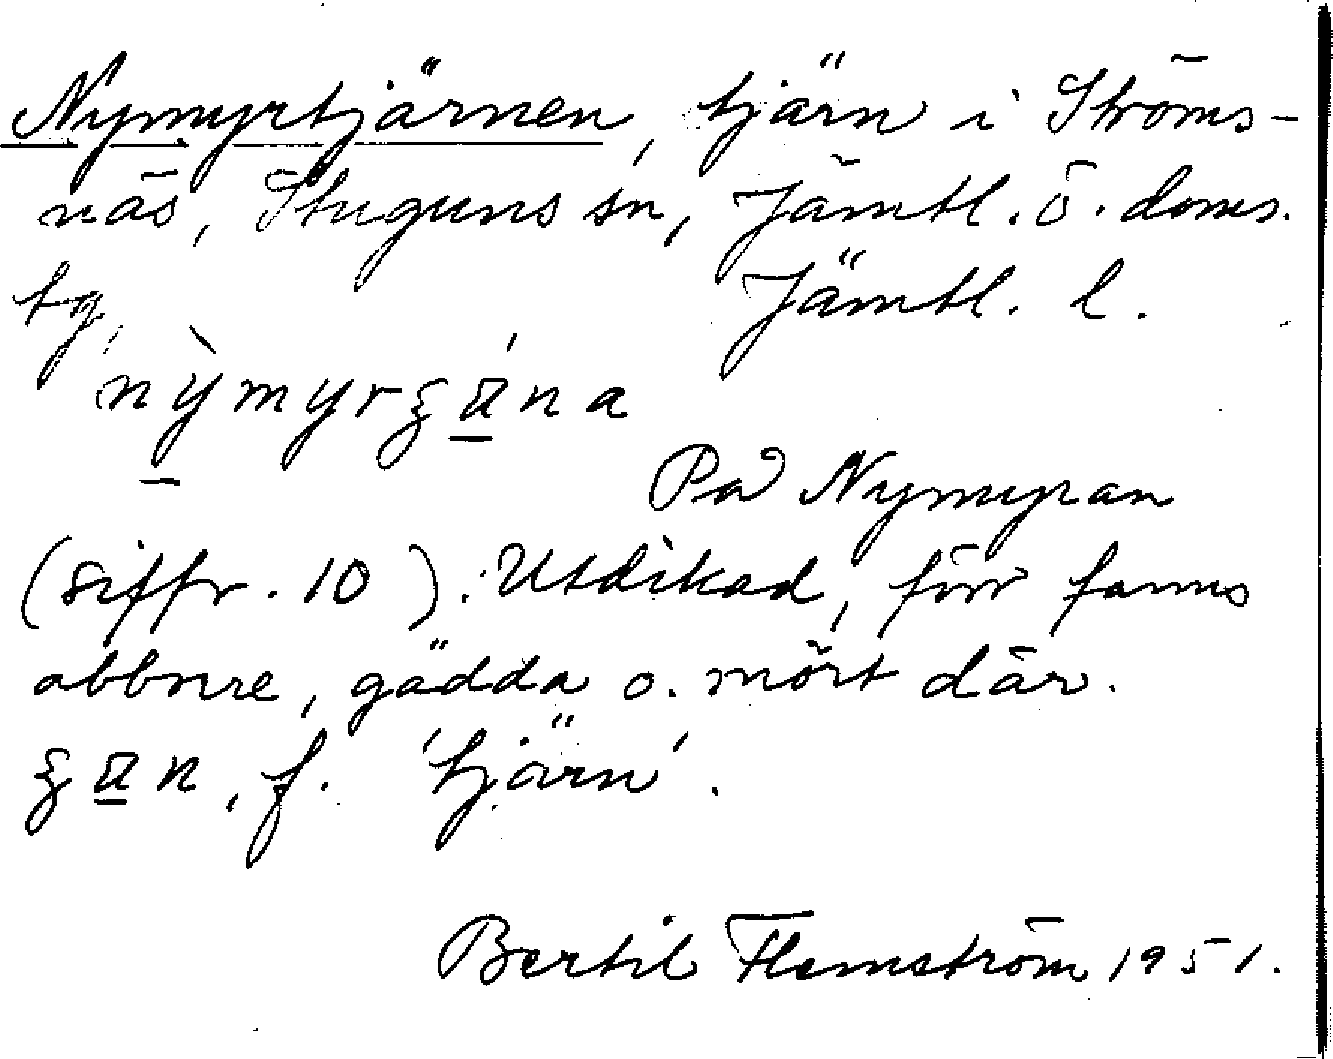 Nymyrtjärnen, tjärn i Ströms-
näs, Stuguns sn, Jämtl. ö. doms.
tg,                    Jämtl. l.
På Nymyran
(siffr. 10). Utdikad, förr fanns
abborre, gädda o. mört där.
f. 'tjärn'.
Bertil Flemström 1951.